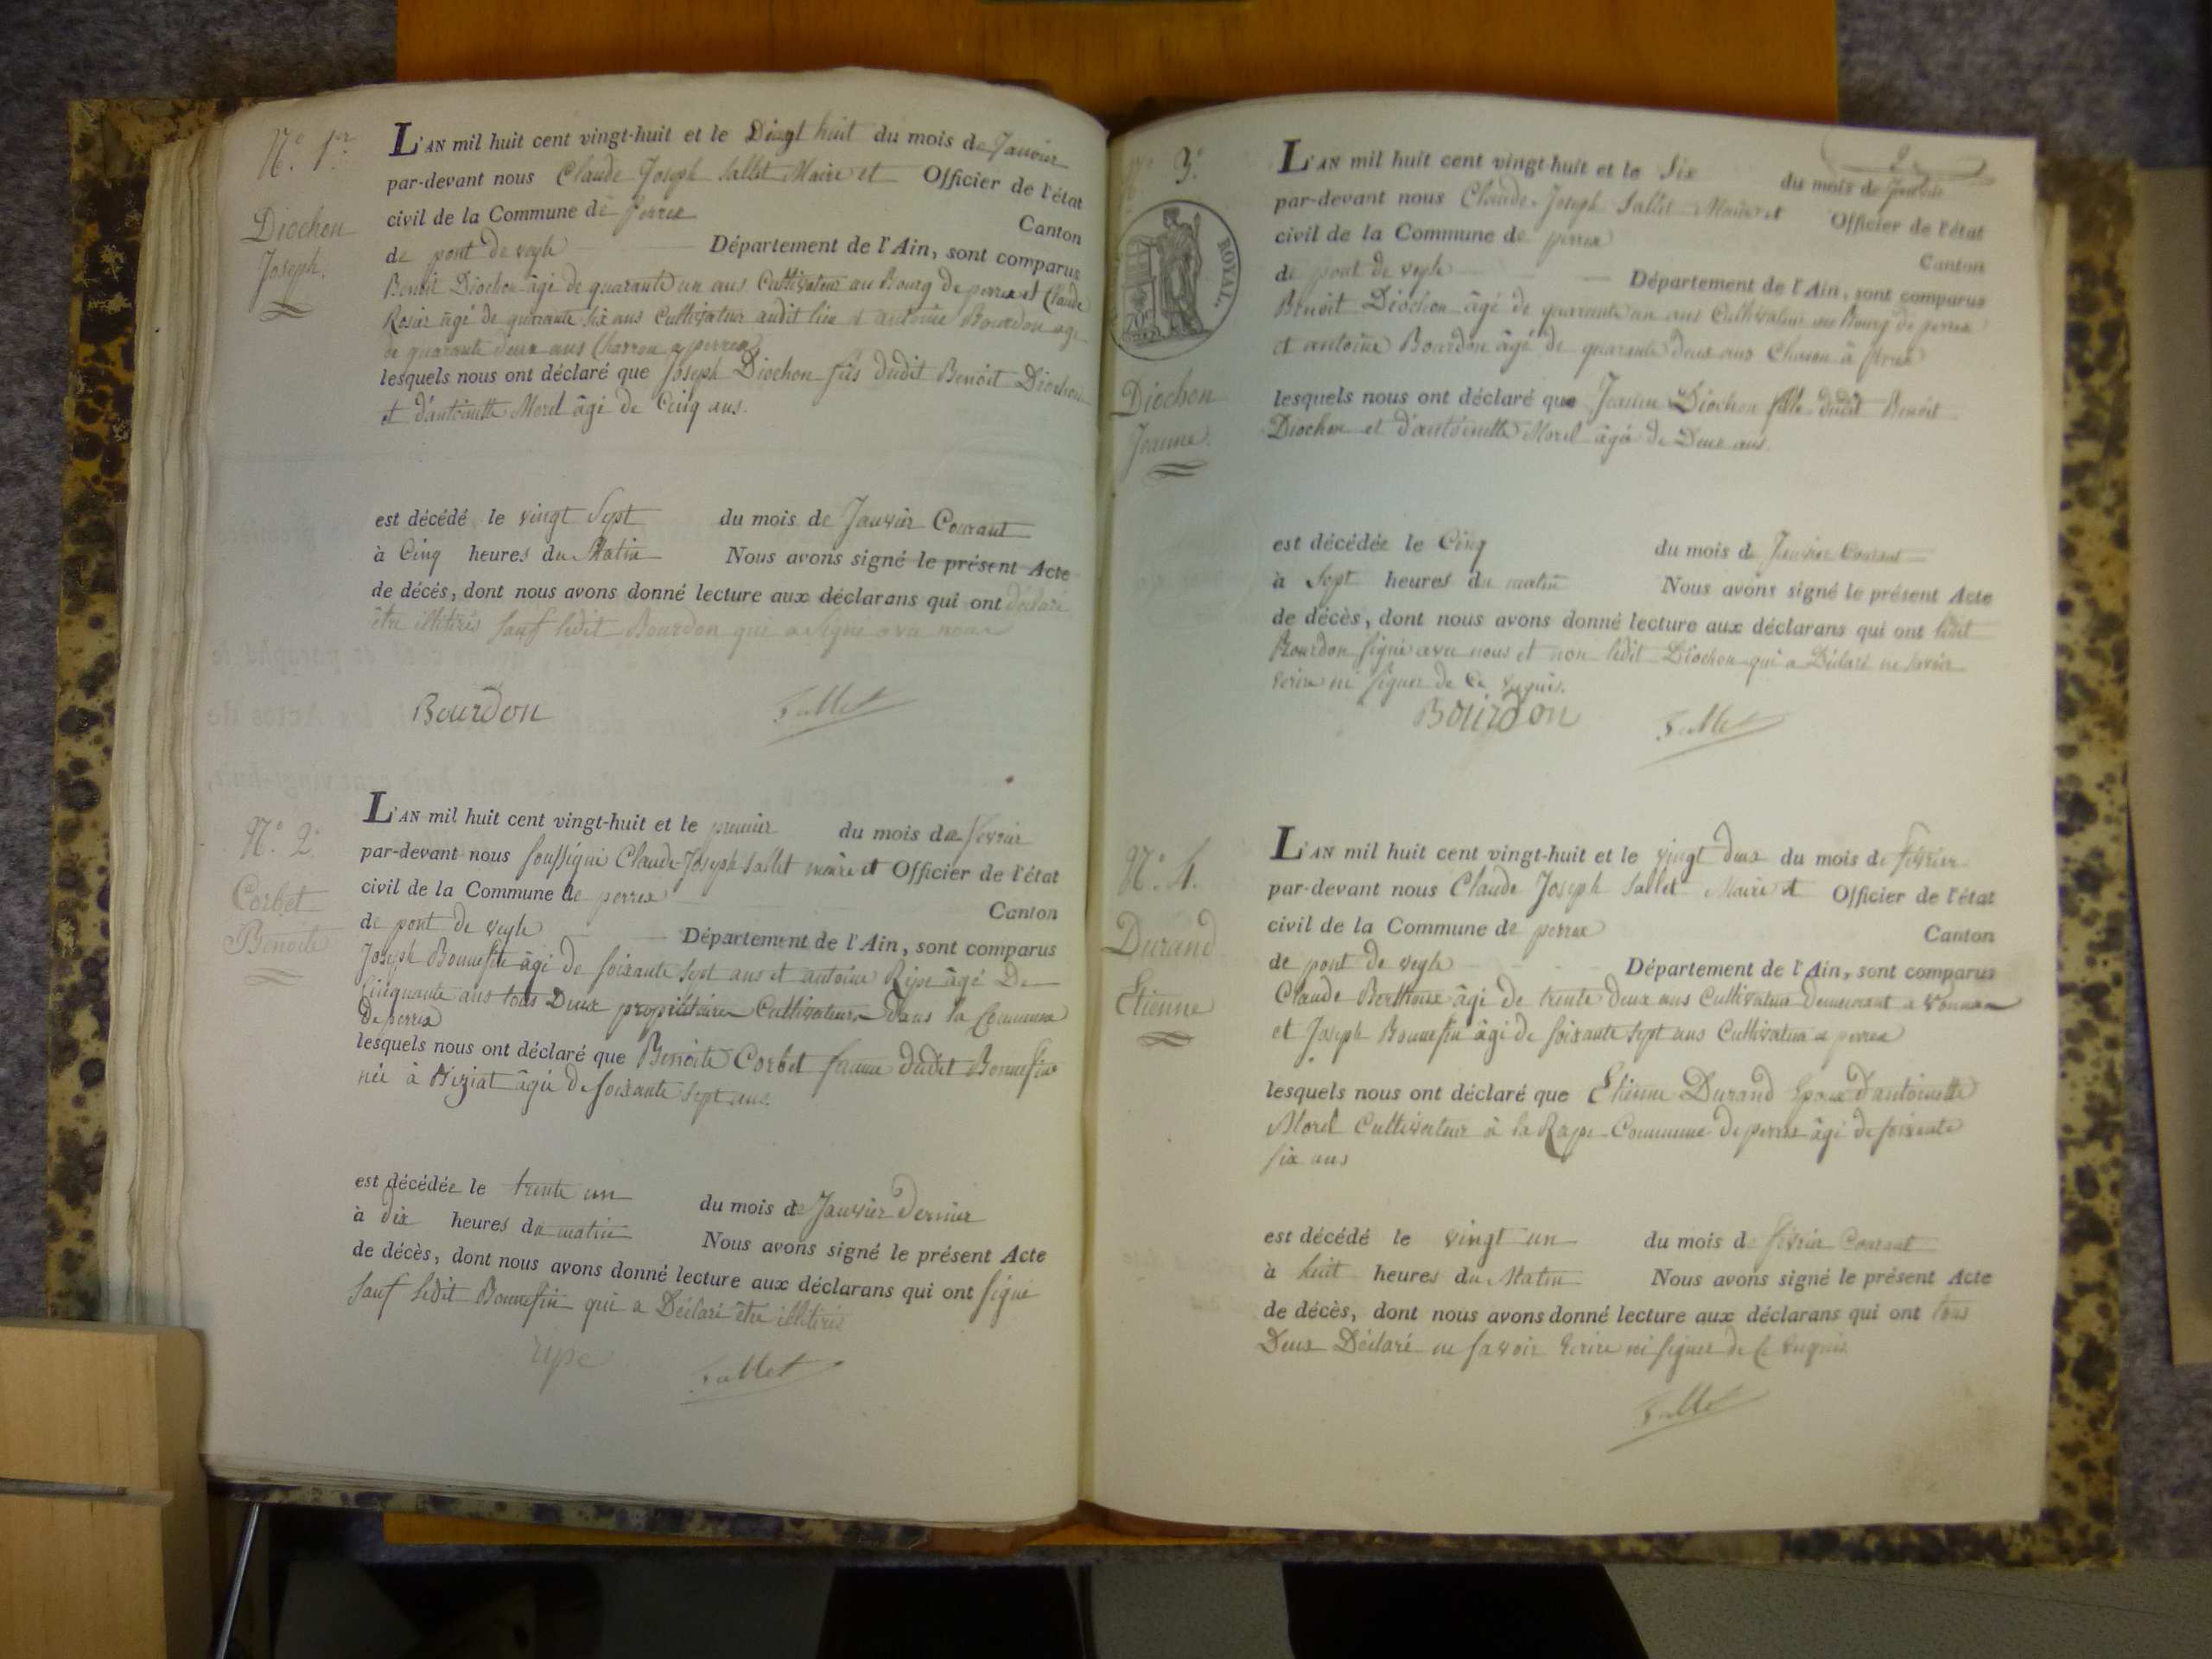 N.° 1.er
Diochon
Joseph.
L'AN mil huit cent vingt-huit et le Vingt huit du mois de Janvier
par-devant nous Claude Joseph Sallet Maire et Officier de l'état
civil de la Commune de perrex Canton
de pont de veyle Département de l'Ain, sont comparus
Benoit Diochon âgé de quarante un ans Cultivateur au Bourg de perrex et Claude
Rosier âgé de quarante six ans Cultivateur audit lieu et antoine Bourdon âgé
de quarante deux ans Charron a perrex
lesquels nous ont déclaré que Joseph Diochon fils dudit Benoit Diochon
et d'antoinette Morel âgé de Cinq ans.
est décédé le vingt Sept du mois de Janvier Courant
à Cinq heures du Matin Nous avons signé le présent Acte
de décés, dont nous avons donné lecture aux déclarans qui ont déclaré
être illitérés sauf ledit Bourdon qui a signé avec nous
Bourdon Sallet
N.° 2.
Corbet
Benoite
L'AN mil huit cent vingt-huit et le premier du mois de fevrier
par-devant nous soussigné Claude Joseph Sallet maire et Officier de l'état
civil de la Commune de perrex Canton
de pont de veyle Département de l'Ain, sont comparus
Joseph Bonnefin âgé de soixante sept ans et antoine Ripe âgé De
Cinquante ans tous Deux propriétaires Cultivateurs dans la Commune
De perrex
lesquels nous ont déclaré que Benoite Corbet femme dudit Bonnefin
née à Biziat âgée de soixante sept ans.
est décédée le trente un du mois de Janvier dernier
à dix heures du matin Nous avons signé le présent Acte
de décès, dont nous avons donné lecture aux déclarans qui ont signé
sauf ledit Bonnefin qui a Déclaré être illitéré
ripe Sallet
2
N.° 3.
ROYAL.
Diochon
Jeanne.
L'AN mil huit cent vingt-huit et le Six du mois de
par-devant nous Claude Joseph Sallet Maire et Officier de l'état
civil de la Commune de perrex Canton
de pont de veyle Département de l'Ain, sont comparus
Benoit Diochon âgé de quarante un ans Cultivateur au Bourg de perrex
et antoine Bourdon âgé de quarante deux ans Charon à perrex
lesquels nous ont déclaré que Jeanne Diochon fille dudit Benoit
Diochon et d'antoinette Morel âgée de Deux ans.
est décédée le Cinq du mois de Courant
à Sept heures du matin Nous avons signé le présent Acte
de décès, dont nous avons donné lecture aux déclarans qui ont ledit
Bourdon signé avec nous et non ledit Diochon qui a Déclaré ne savoir
écrire ni signer de ce requis.
Bourdon Sallet
N.° 4.
Durand
Etienne
L'AN mil huit cent vingt-huit et le vingt deux du mois de février
par-devant nous Claude Joseph Sallet Maire et Officier de l'état
civil de la Commune de perrex Canton
de pont de veyle Département de l'Ain, sont comparus
Claude Berthoux âgé de trente deux ans Cultivateur Demeurant a Vonnas
et Joseph Bonnefin âgé de soixante sept ans Cultivateur a perrex
lesquels nous ont déclaré que Etienne Durand Epoux d'antoinette
Morel Cultivateur à la Rape Commune de perrex âgé de soixante
six ans
est décédé le vingt un du mois de février Courant
à huit heures du Matin Nous avons signé le présent Acte
de décès, dont nous avons donné lecture aux déclarans qui ont tous
Deux Déclaré ne savoir écrire ni signer de ce requis
Sallet